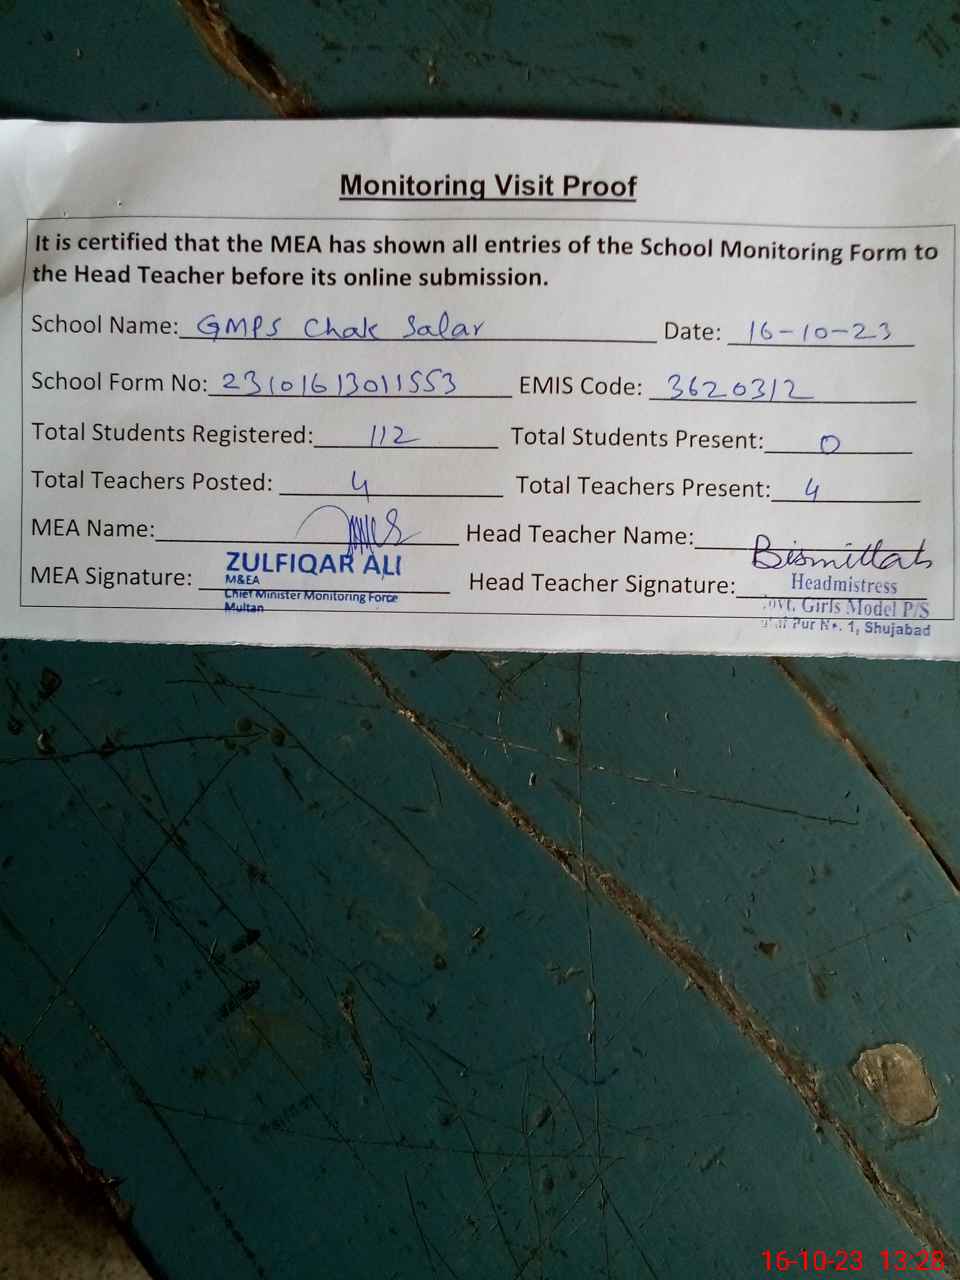 Monitoring Visit Proof
It is certified that the MEA has shown all entries of the School Monitoring Form to
the Head Teacher before its online submission.
School Name: GMPS Chak Salar Date: 16-10-23
School Form No: 23101613011553 EMIS Code: 36620312
Total Students Registered: 112 Total Students Present: 0
Total Teachers Posted: 4 Total Teachers Present: 4
MEA Name: Head Teacher Name:
Bismillah
ZULFIQAR ALI
MEA Signature: M&EA Head Teacher Signature: Headmistress
Chief Minister Monitoring Force
Multan
Govt. Girls Model P/S
Pur No. 1, Shujabad
16-10-23 13:28